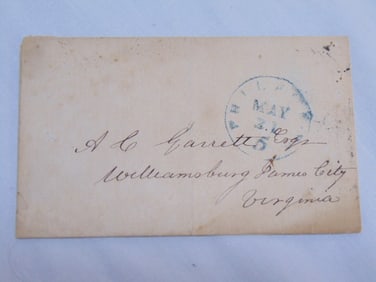 PHILADA
MAY
5
A C Garrett Esqr
Williamsburg James City
Virginia